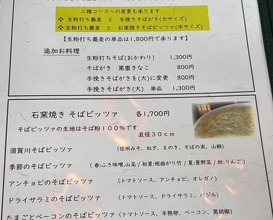 二種コースへの変更も承ります
※ 生粉打ち蕎麦 と 手挽きそばがき(大サイズ)
※ 生粉打ち蕎麦 と 石窯焼き そばピッツァ(中サイズ)
【生粉打ち蕎麦の単品は1,800円で承ります】
追加お料理
生粉打ちそば(おかわり) 1,300円
そばがき 黒蜜きなこ 800円
手挽きそばがきを(大)に変更 800円
手挽きそばがき(大) 単品 1,300円
石窯焼き そばピッツァ 各1,700円
そばピッツァの生地はそば粉100%です
直径30cm
須賀川そばピッツァ (信州みそ、ねぎ、えのき、そばの実、山椒)
季節のそばピッツァ
アンチョビのそばピッツァ (トマトソース、アンチョビ、オレガノ)
ドライサラミのそばピッツァ (トマトソース、ドライサラミ、バジル)
たまごとベーコンのそばピッツァ (トマトソース、半熟卵、ベーコン、黒胡椒)